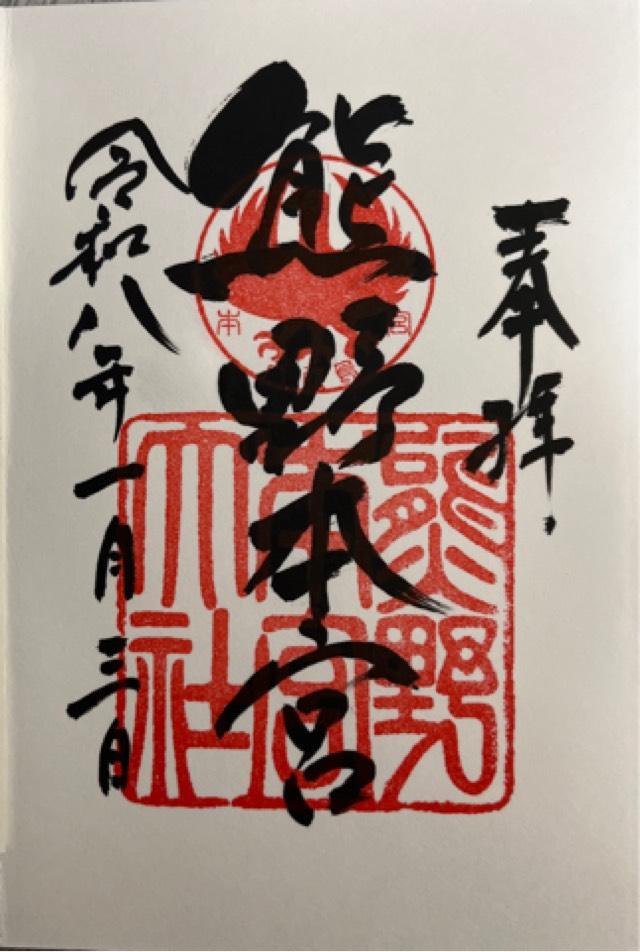 奉拝
熊野本宮
令和八年一月三日
熊野
本宮
大社
本
宮